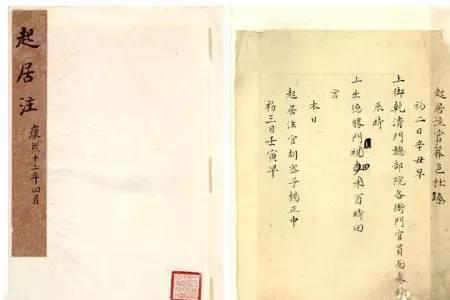 起居注
康熙十二年四月
起居注官莽色杜臻
初二日辛丑早
上御乾清門聽部院各衙門官員面奏政
辰時
上出德勝門禾酉時回
宮
本日
起居注官胡密子楊正中
初三日壬寅早